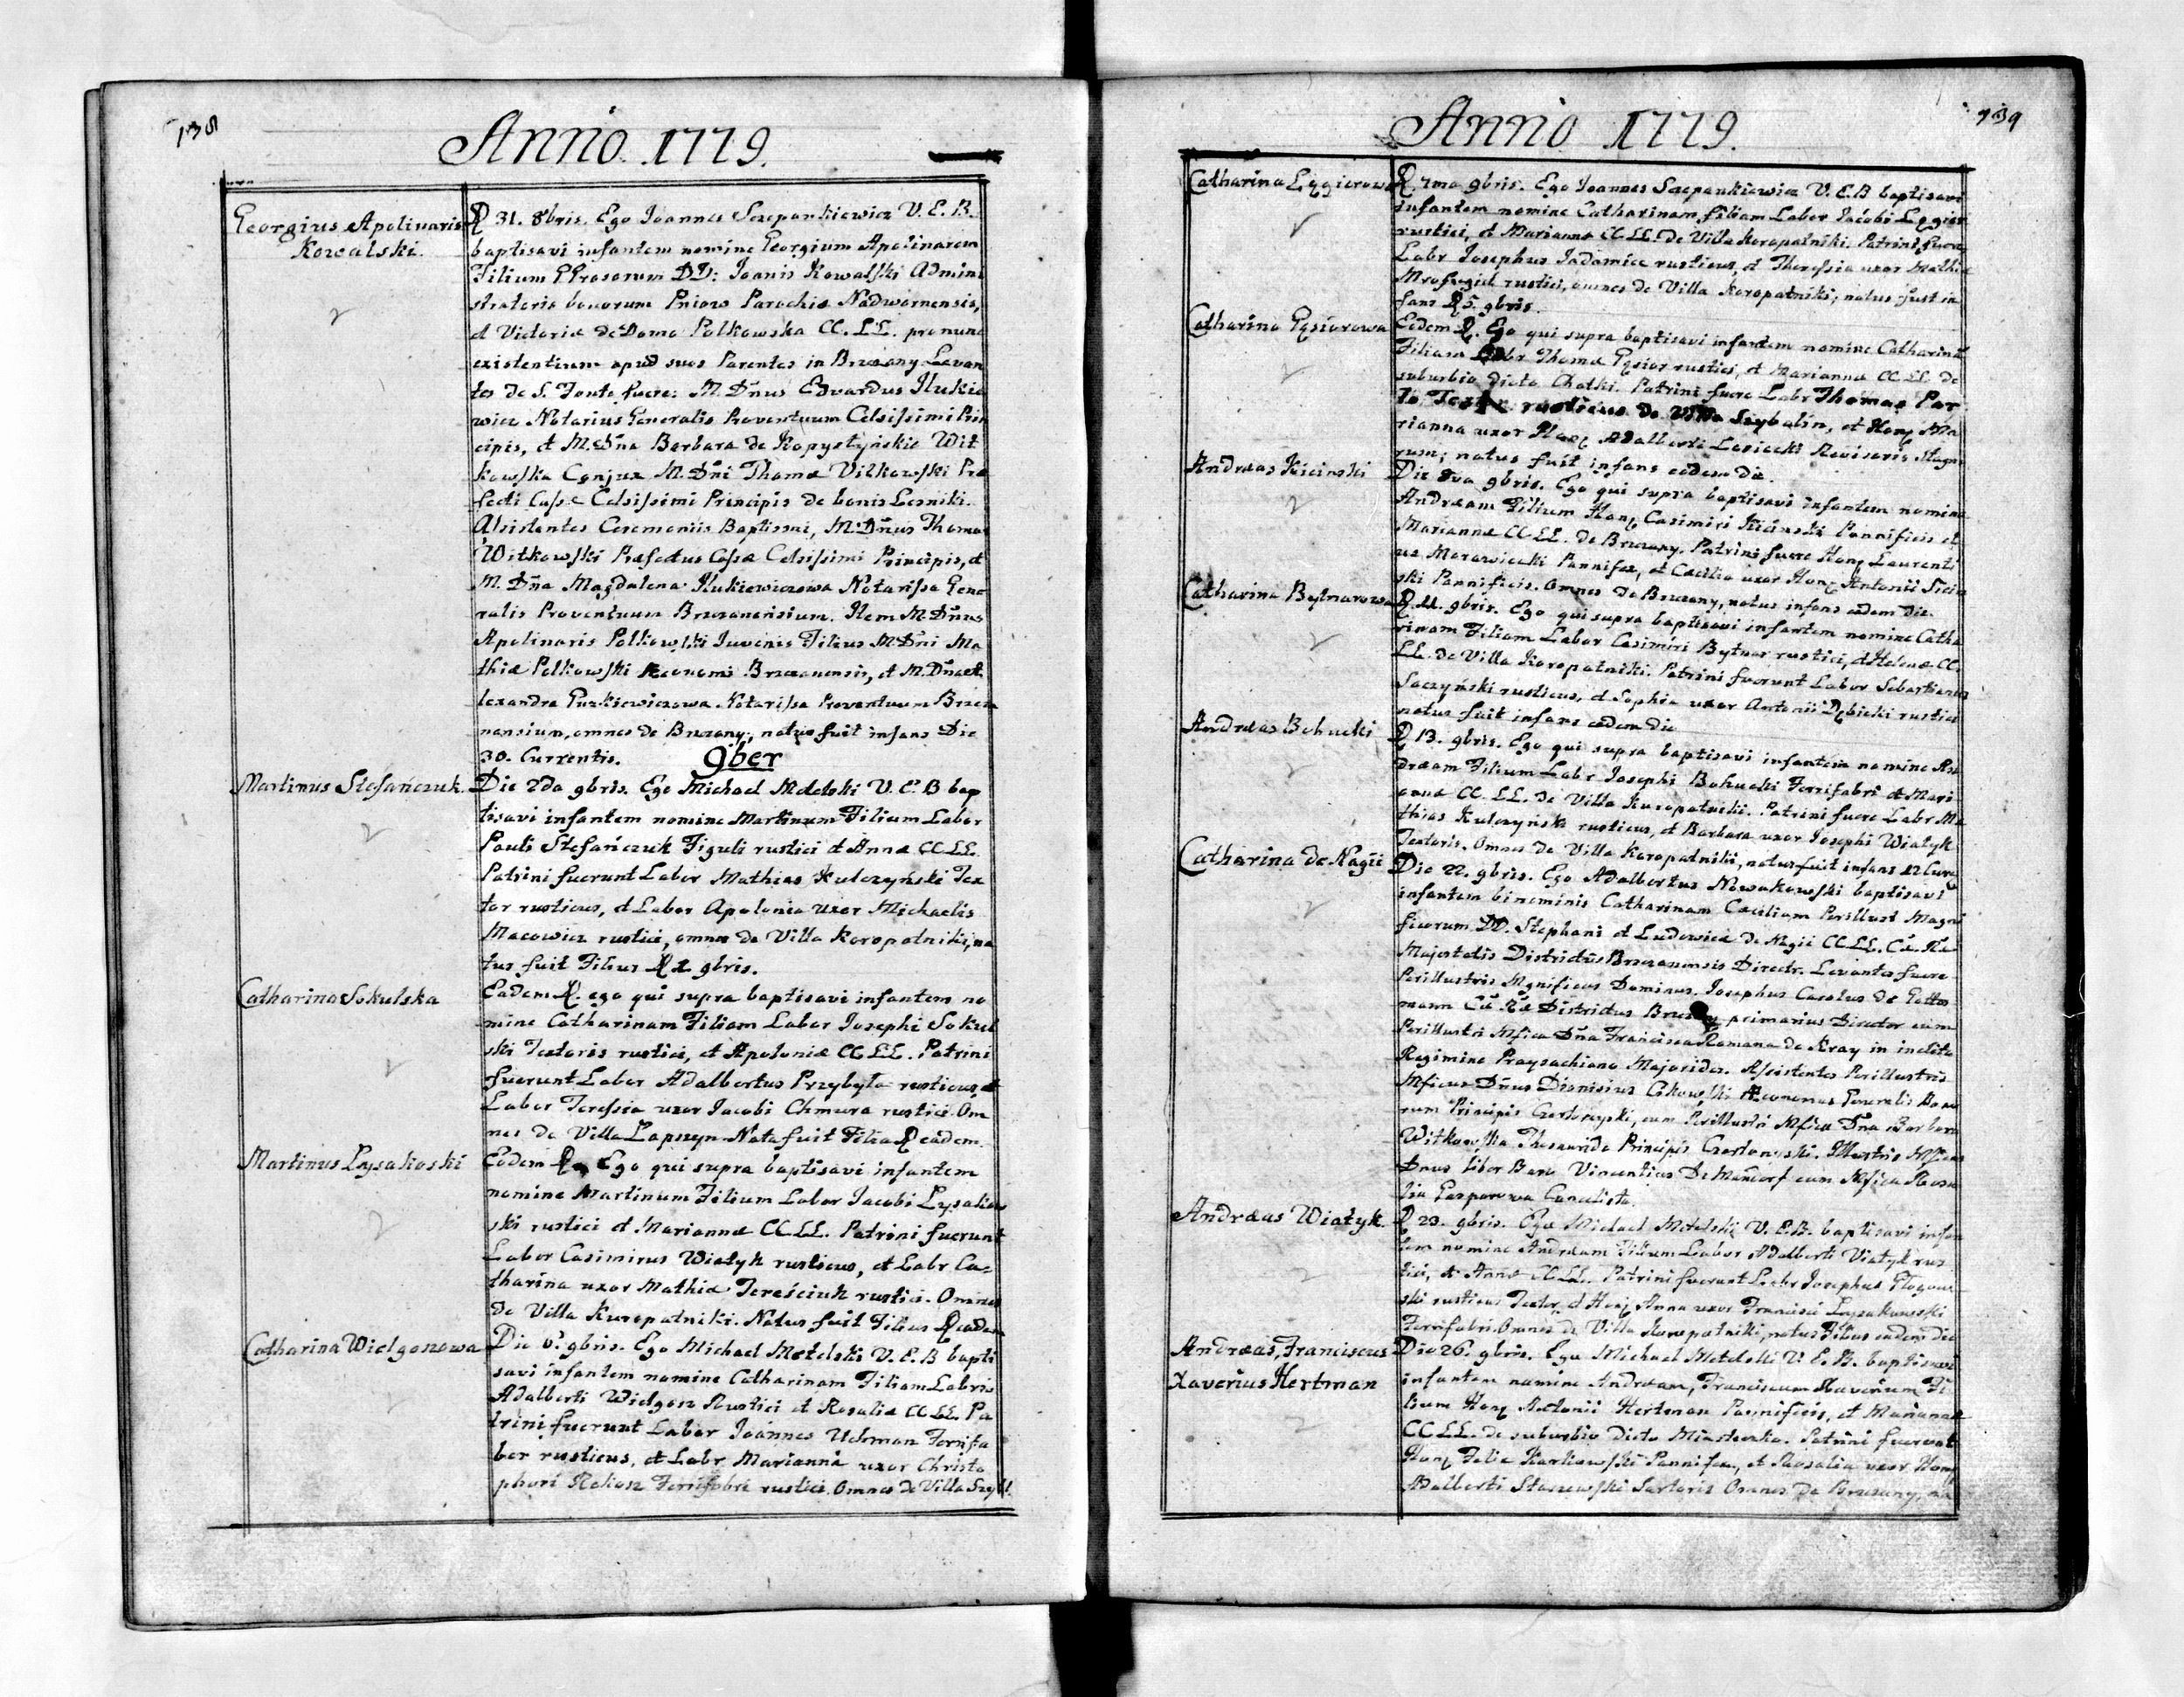 138
Anno. 1779.
Georgius Apolinaris
Kowalski.
D 31. 8bris. Ego Joannes Szepankiewicz V. E. B.
baptisavi infantem nomine Georgium Apolinarem
Filium PGrosorum DD: Joannis Kowalski Admini
stratoris bonorum Priow Parochiæ Nadwornensis,
et Victoriæ de Domo Polkowska CC. LL. pro nunc
existentium apud suos Parentes in Brzezany. Levan
tes de S. Fonte fuere: M. Dñus Edvardus Ilukie
wicz Notarius Generalis Proventuum Celsissimi Prin
cipis, et M. Dña Barbara de Kopystyńskie Wit
kowska Conjux M. Dñi Thomæ Vitkowski Præ
fecti Cassæ Celsissimi Principis de bonis Lesniki.
Assistentes Ceremoniis Baptismi, M: Dñus Thomas
Witkowski Præfectus Cassæ Celsissimi Principis, et
M. Dña Magdalena Ilukiewiczowa Notarissa Gene
ralis Proventuum Brzezanensium. Item M. Dñus
Apolinaris Polkowski Juvenis Filius M. Dñi Ma
thiæ Polkowski Æconomi Brzezanensis, et M. Dña A
lexandra Guzkiewiczowa Notarissa Proventuum Brzeza
nensium, omnes de Brzezany, natus fuit infans Die
30. Currentis.
9ber
Martinus Stefańczuk.
Die 2da 9bris. Ego Michael Metelski V. E. B bap
tisavi infantem nomine Martinum Filium Labor
Pauli Stefańczuk Figuli rustici et Annæ CC LL.
Patrini fuerunt Labor Mathias Kulczyński Tex
tor rusticus, et Labor Apolonia Uxor Michaelis
Macowicz rustici, omnes de Villa Koropatniki, na
tus fuit Filius D 1 9bris.
Catharina Sokulska
Eadem D. ego qui supra baptisavi infantem no
mine Catharinam Filiam Labor Josephi Sokul
ski Textoris rustici, et Apoloniæ CC LL. Patrini
fuerunt Labor Adalbertus Przybyła rusticus, et
Labor Teressia uxor Jacobi Chmura rustici. Om
nes de Villa Lapszyn. Nata fuit Filia D eadem.
Martinus Lysakoski
Eodem D. Ego qui supra baptisavi infantem
nomine Martinum Filium Labor Jacobi Lysakow
ski rustici et Mariannæ CC LL. Patrini fuerunt
Labor Casimirus Wiatyk rusticus, et Labr Ca=
tharina uxor Mathiæ Tereściuk rustici. Omnes
de Villa Kuropatniki. Natus fuit Filius D eadem
Catharina Wielgoszowa
Die 6. 9bris. Ego Michael Metelski V. E. B bapti
savi infantem nomine Catharinam Filiam Labris
Adalberti Wielgosz Rustici et Rosaliæ CC LL. Pa
trini fuerunt Labor Joannes Uchman Ferrifa
ber rusticus, et Labr Marianna uxor Christo
phori Ferrifabri rustici. Omnes de Villa Szyb.
139
Anno 1779.
Catharina Lęgierowa
D. 7ma 9bris. Ego Joannes Szepankiewicz V. E. B baptisavi
infantem nomine Catharinam, filiam Labor Jacobi Lęgier
rustici, et Mariannæ CC LL. de Villa Koropatniki. Patrini fuere
Labr Josephus Jadamiec rusticus, et Theressia uxor Mathiæ
rustici, omnes de Villa Koropatniki, natus fuit in
fans D 5. 9bris.
Catharina Gęsiorowa
Eadem D. Ego qui supra baptisavi infantem nomine Catharinã
Filiam Labr Thomæ Gęsior rustici, et Mariannæ CC LL. de
suburbio dicto Chatki. Patrini fuere Labr Thomas Par
rusticus de Villa Szybalin, et Hon Ma
rianna uxor Hon Adalberti Lesiecki Revisoris Stagno
rum, natus fuit infans eadem die.
Andræas Kicinski
Die 8va 9bris. Ego qui supra baptisavi infantem nomine
Andræam Filium Hon Casimiri Kicinski Pannificis et
Mariannæ CC LL. de Brzezany. Patrini fuere Hon Laurenti
us Morawiecki Pannifex, et Cæcilia uxor Hon Antonii Sicin
ski Pannificis. Omnes de Brzezany, natus infans eadem die.
Catharina Bytnarowa
D. 11. 9bris. Ego qui supra baptisavi infantem nomine Catha
rinam Filiam Labor Casimiri Bytnar rustici, et Helenæ CC.
LL. de Villa Koropatniki. Patrini fuerunt Labor Sebastianus
Saczyński rusticus, et Sophia uxor Antonii Dębicki rustici
natus fuit infans eadem die
Andræas Bohucki
D 13. 9bris. Ego qui supra baptisavi infantem nomine An
dræam Filium Labr Josephi Bohucki Ferrifabri et Mari
annæ CC. LL. de Villa Kuropatniki. Patrini fuere Labr Ma
thias Kulczyński rusticus, et Barbara uxor Josephi Wiatyk
Textoris. Omnes de Villa Koropatniki, natus fuit infans 12 Curr
Catharina de Nagii
Die 22. 9bris. Ego Adalbertus Nowakowski baptisavi
infantem binominis Catharinam Cæciliam Perillust Magni
ficorum DD. Stephani et Ludovicæ de Nagii CC LL. Cæ. Ræ
Majestatis Districtûs Brzezanensis Directr. Levantes fuere
Perillustris Mgnificus Dominus Josephus Carolus de
mann Cæ. Ræ Districtus primarius Director cum
Perillustri Mfica Dña Francisca Romana de Kray in inclito
Regimine Praysachiano Majorides. Assistentes Perillustris
Mficus Dñus Dionisius Cikowski Æconomus Generalis Bono
rum Principis Czartoryski, cum Perillustri Mfica Dña Barbara
Witkowska Thesaurida Principis Czartoryski. Illustris Mficus
Dnus Liber Baro Vincentius De cum Mfica Rosa
lia Gasparowa
Andræas Wiatyk.
D 23. 9bris. Ego Michael Metelski V. E. B. baptisavi infan
tem nomine Andræam Filium Labor Adalberti Viatyk rus
tici, et Annæ CC LL. Patrini fuerunt Labr Josephus Głogow
ski rusticus Textor, et Hon Anna uxor Francisci Lysakowski
Ferrifabri. Omnes de Villa Koropatniki, natus Filius eadem die
Andræas, Franciscus
Xaverius Hertman
Die 26. 9bris. Ego Michael Metelski V. E. B. baptisavi
infantem nomine Andræam, Franciscum Xaverium Fi
lium Hon Antonii Hertman Pannificis, et Mariannæ
CC LL. de suburbio dicto Miasteczko. Patrini fuerunt
Hon Felix Karkowski Pannifex, et Rosalia uxor Hon
Adalberti Staszewski Sartoris Omnes de Brzezany, na